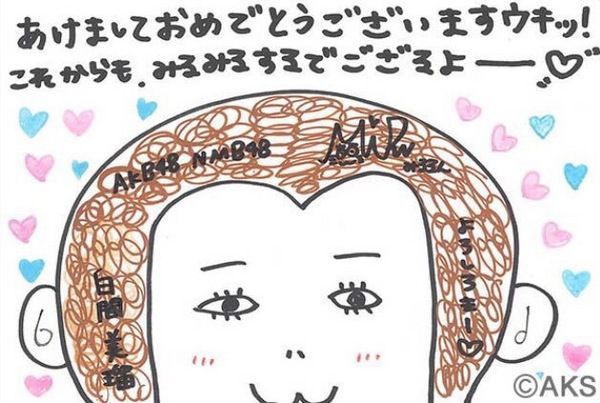 あけましておめでとうございますウキッ!
これからも、みるみるするでござるよー♡
AKB48 NMB48
みるるん
よろしうきー♡
白間美瑠
©AKS